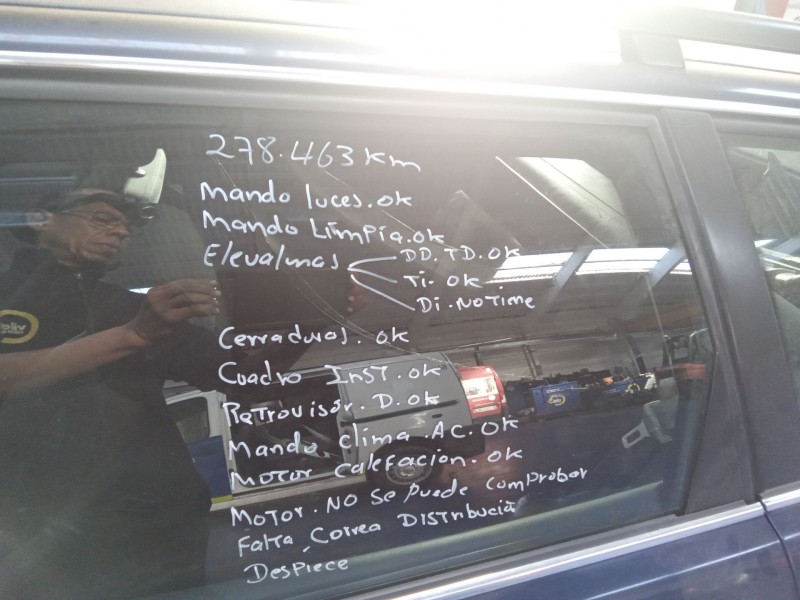 278.463 km
Mando luces.ok
Mando Limpia.ok
Elevalunas
DD.TD.OK
Ti. OK
Di.NO Tiene
Cerraduras. ok
Cuadro Inst.ok
Retrovisor.D.OK
Mando clima.AC.OK
Motor calefacion.ok
MOTOR.NO Se puede comprobar
Falta Correa DISTribución
Despiece